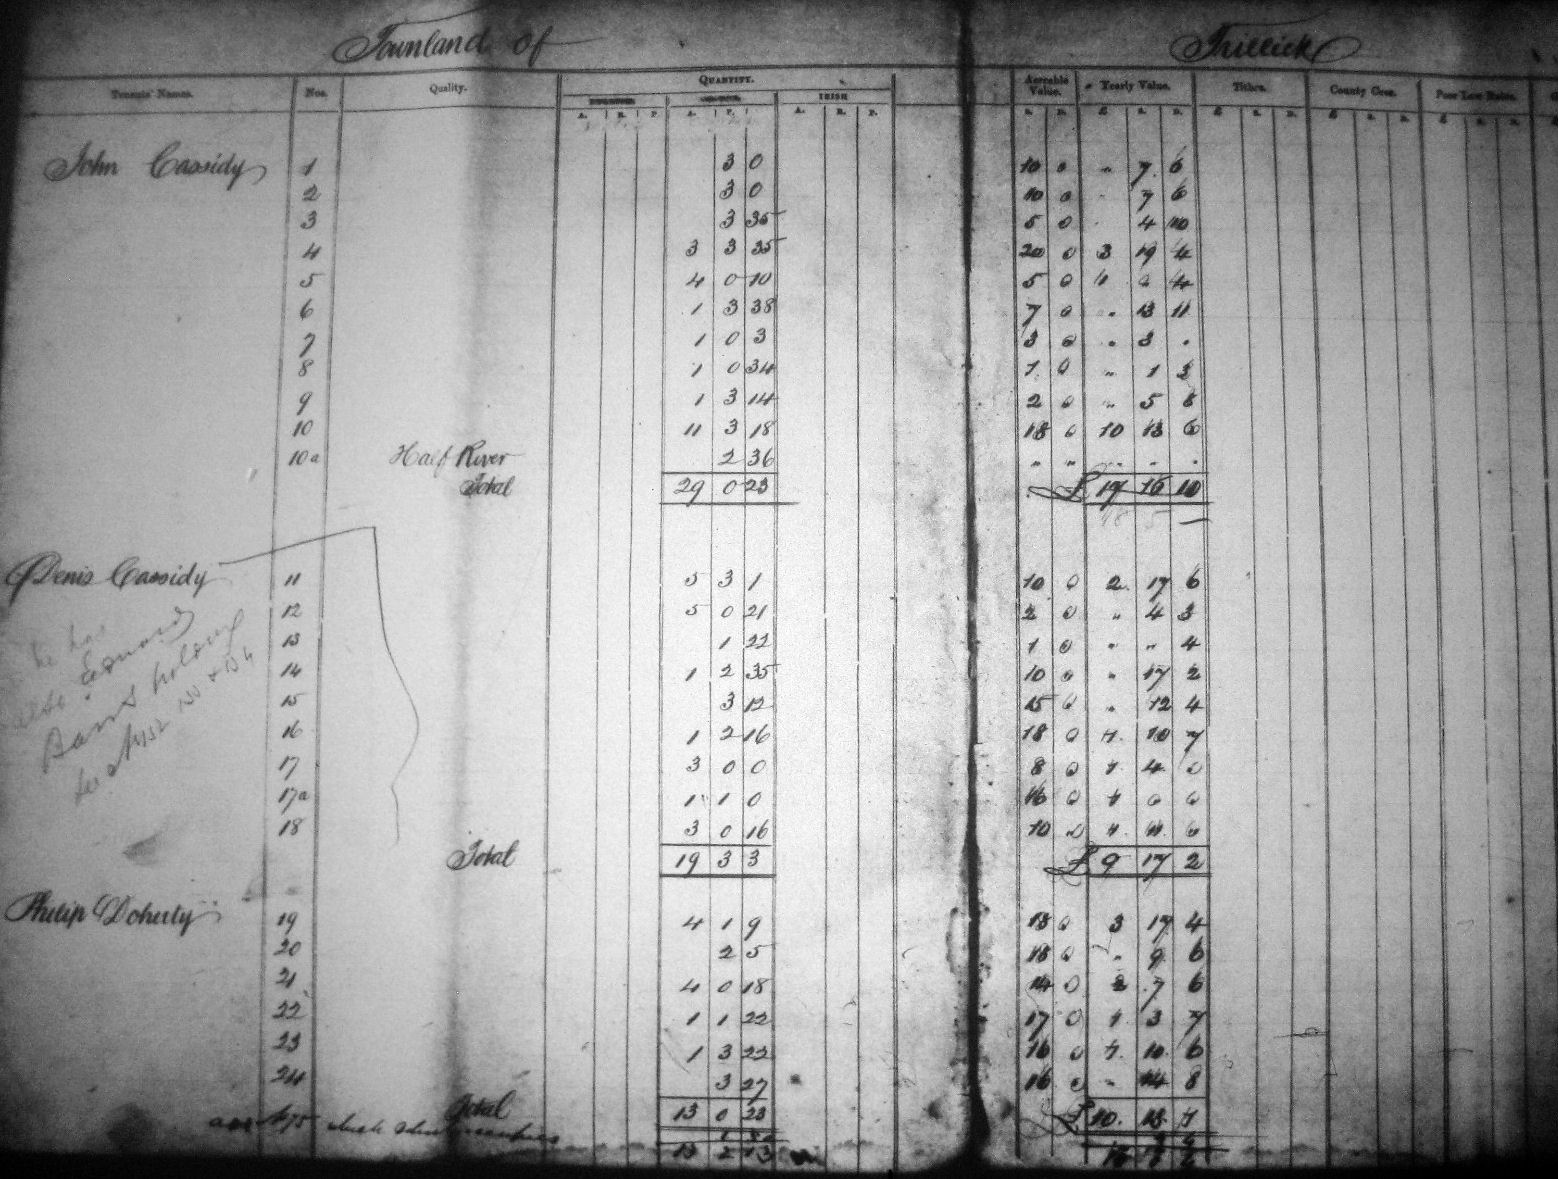 Townland of Trillick
QUANTITY.
Tenants' Names. Nos. Quality. IRISH Acreable Value. Yearly Value. Tithes. County Cess. Poor Law Rates.
A. R. P. A. R. A. R. P. S. D. £ S. D. £ S. D. £ S. D. £ S. D.
John Cassidy 1 3 0 10 0 " 7 6
2 3 0 10 0 " 7 6
3 3 35 5 0 " 4 10
4 3 3 35 20 0 3 19 4
5 4 0 10 5 0 1 0 4
6 1 3 38 7 0 " 13 11
7 1 0 3 3 0 " 3 "
8 1 0 34 1 0 " 1 3
9 1 3 14 2 0 " 5 8
10 11 3 18 18 0 10 13 6
10a Half River 2 36 " " " " "
Total 29 0 23 £ 17 16 10
18 5 —
Denis Cassidy 11 5 3 1 10 0 2 17 6
12 5 0 21 2 0 " 4 3
13 1 22 1 0 " " 4
14 1 2 35 10 0 " 17 2
15 3 12 15 0 " 12 4
16 1 2 16 18 0 1 10 7
17 3 0 0 8 0 1 4 0
17a 1 1 0 16 0 1 0 0
18 3 0 16 10 0 1 11 0
he has
also Edward
Banns holding
Total 19 3 3 £ 9 17 2
Philip Doherty 19 4 1 9 18 0 3 17 4
20 2 5 18 0 " 9 6
21 4 0 18 14 0 2 7 6
22 1 1 22 17 0 1 3 7
23 1 3 22 16 0 1 10 6
24 3 27 16 0 " 14 8
Total 13 0 23 £ 10 13 7
13 2 13